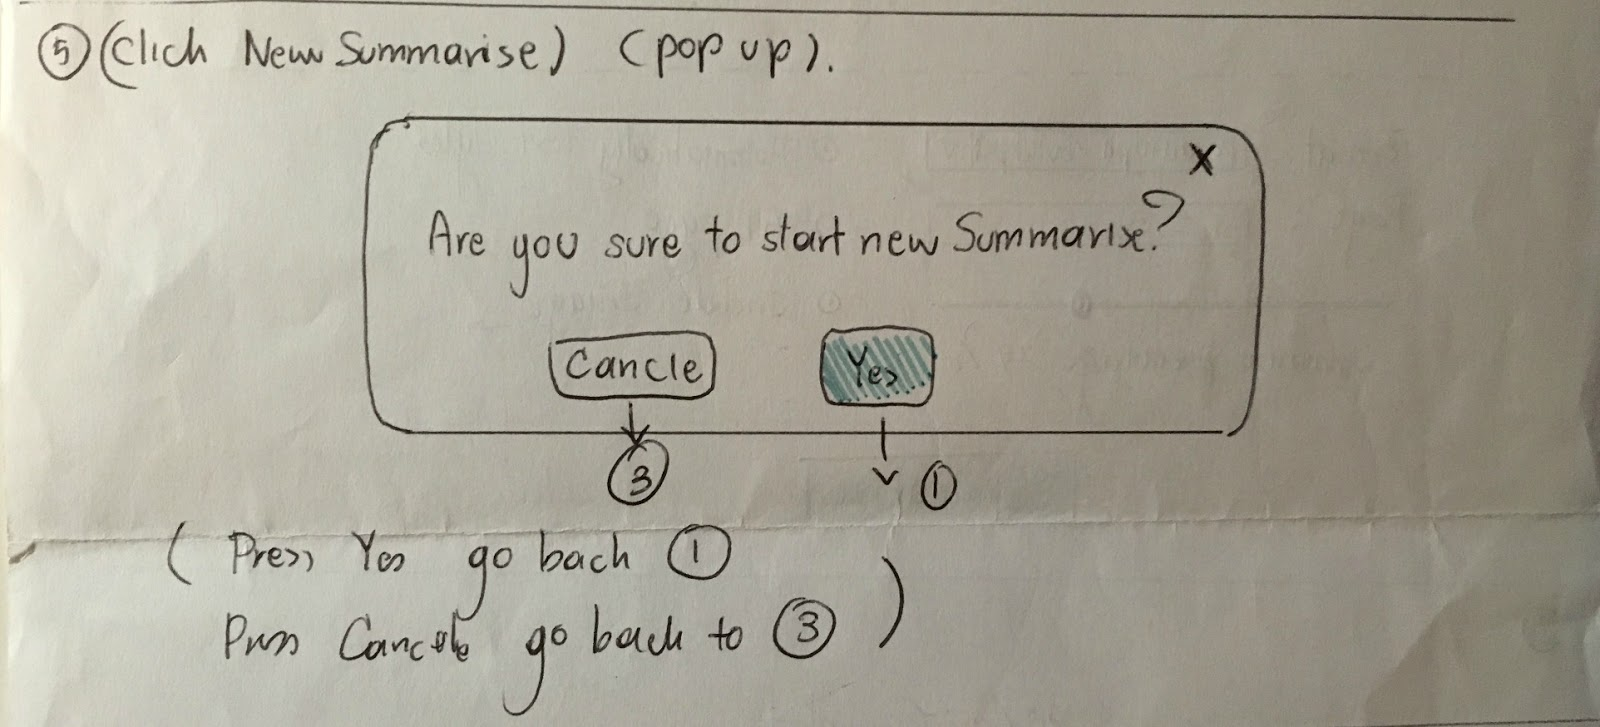 ⑤ (Click New Summarise) (pop up).
X
Are you sure to start new Summarise?
Cancle Yes
③ ①
( Press Yes go back ①
Press Cancele go back to ③ )